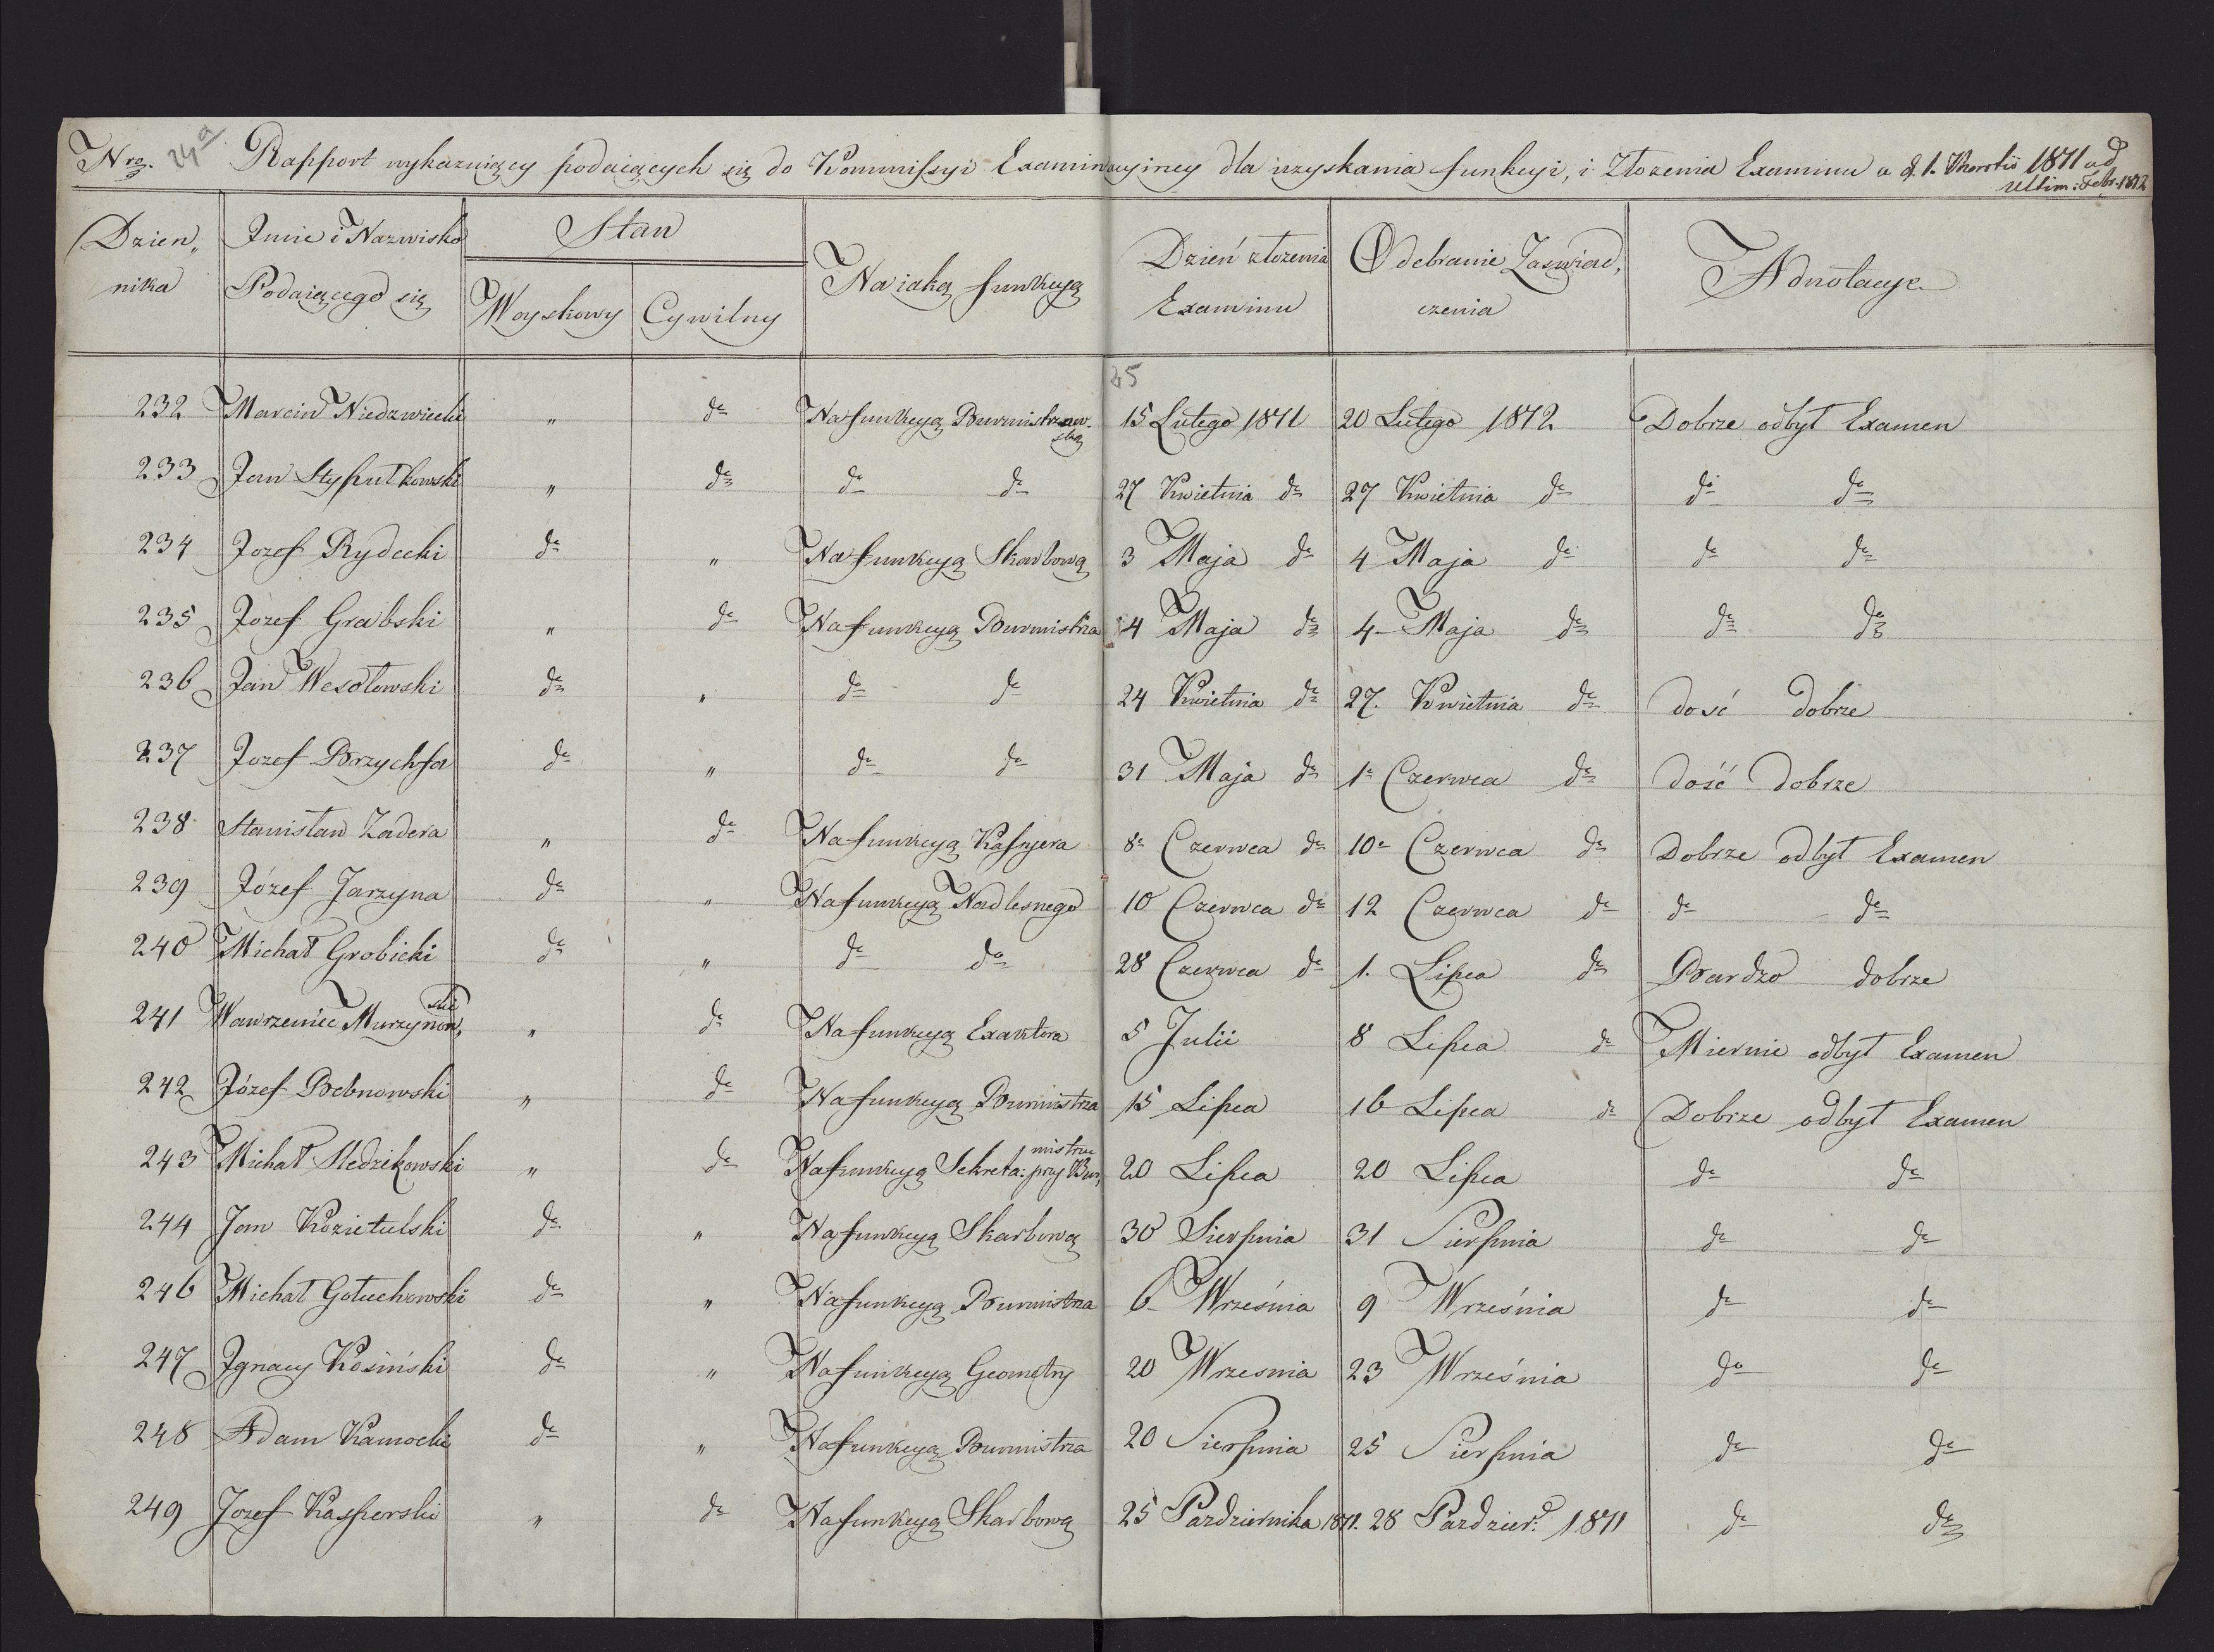 Nro. 24a Rapport wykazuiący podaiących się do Kommissyi Examinacyiney dla uzyskania funkcyi, i Złożenia Examinu a d. 1. Martii 1871 ad
Ultim: Febr. 1872
Dzien„ Jmie i Nazwisko Stan Na iaką funkcyą Dzień złożenia Odebranie Zaswiad,
nika Podaiącego się Woyskowy Cywilny Examinu czenia Adnotacye
25
232 Marcin Niedzwiecki „ do Na funkcyą Burmistrzow- 15 Lutego 1871 20 Lutego 1872 Dobrze odbył Examen
ską
233 Jan Stypułkowski „ do do do 27 Kwietnia do 27 Kwietnia do do do
234 Jozef Rydecki do „ Na funkcyą Skarbową 3 Maja do 4 Maja do do do
235 Józef Grabski „ do Na funkcyą Burmistrza 4 Maja do 4 Maja do do do
236 Jan Wesołowski do „ do do 24 Kwietnia do 27. Kwietnia do dość dobrze
237 Jozef Brzychfa do „ do do 31 Maja do 1o Czerwca do dość dobrze
238 Stanisław Zadera „ do Na funkcyą Kassyera 8o Czerwca do 10o Czerwca do Dobrze odbył Examen
239 Józef Jarzyna do „ Na funkcyą Nadlesnego 10 Czerwca do 12 Czerwca do do do
240 Michał Grobicki do „ do do 28 Czerwca do 1. Lipca do Bardzo dobrze
241 Wawrzeniec Murzynow, ski „ do Na funkcyą Exaktora 5 Julii 8 Lipca do Miernie odbył Examen
242 Józef Bebnowski „ do Na funkcyą Burmistrza 15 Lipca 16 Lipca do Dobrze odbył Examen
243 Michał Sledzikowski „ do Na funkcyą Sekreta: przy Bur, mistrzu 20 Lipca 20 Lipca do do
244 Jan Kozietulski do „ Na funkcyą Skarbową 30 Sierpnia 31 Sierpnia do do
246 Michał Gołuchowski do „ Na funkcyą Burmistrza 6 Września 9 Września do do
247 Jgnacy Kosiński do „ Na funkcyą Geometry 20 Wrzesnia 23 Września do do
248 Adam Kamocki do „ Na funkcyą Burmistrza 20 Sierpnia 25 Sierpnia do do
249 Jozef Kasperski „ do Na funkcyą Skarbową 25 Pazdziernika 1871. 28 Pazdzier. 1871 do do